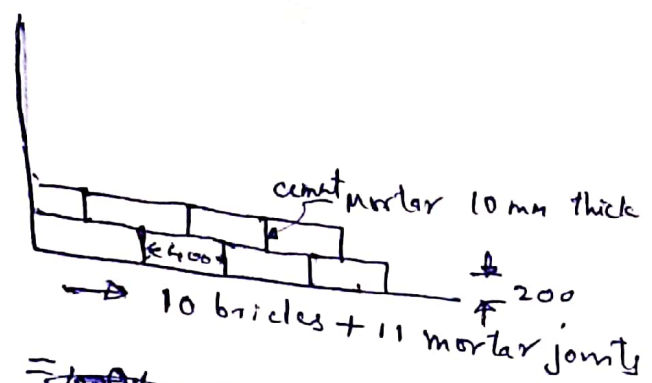 cement mortar 10 mm thick
400
200
10 bricks + 11 mortar joints
=